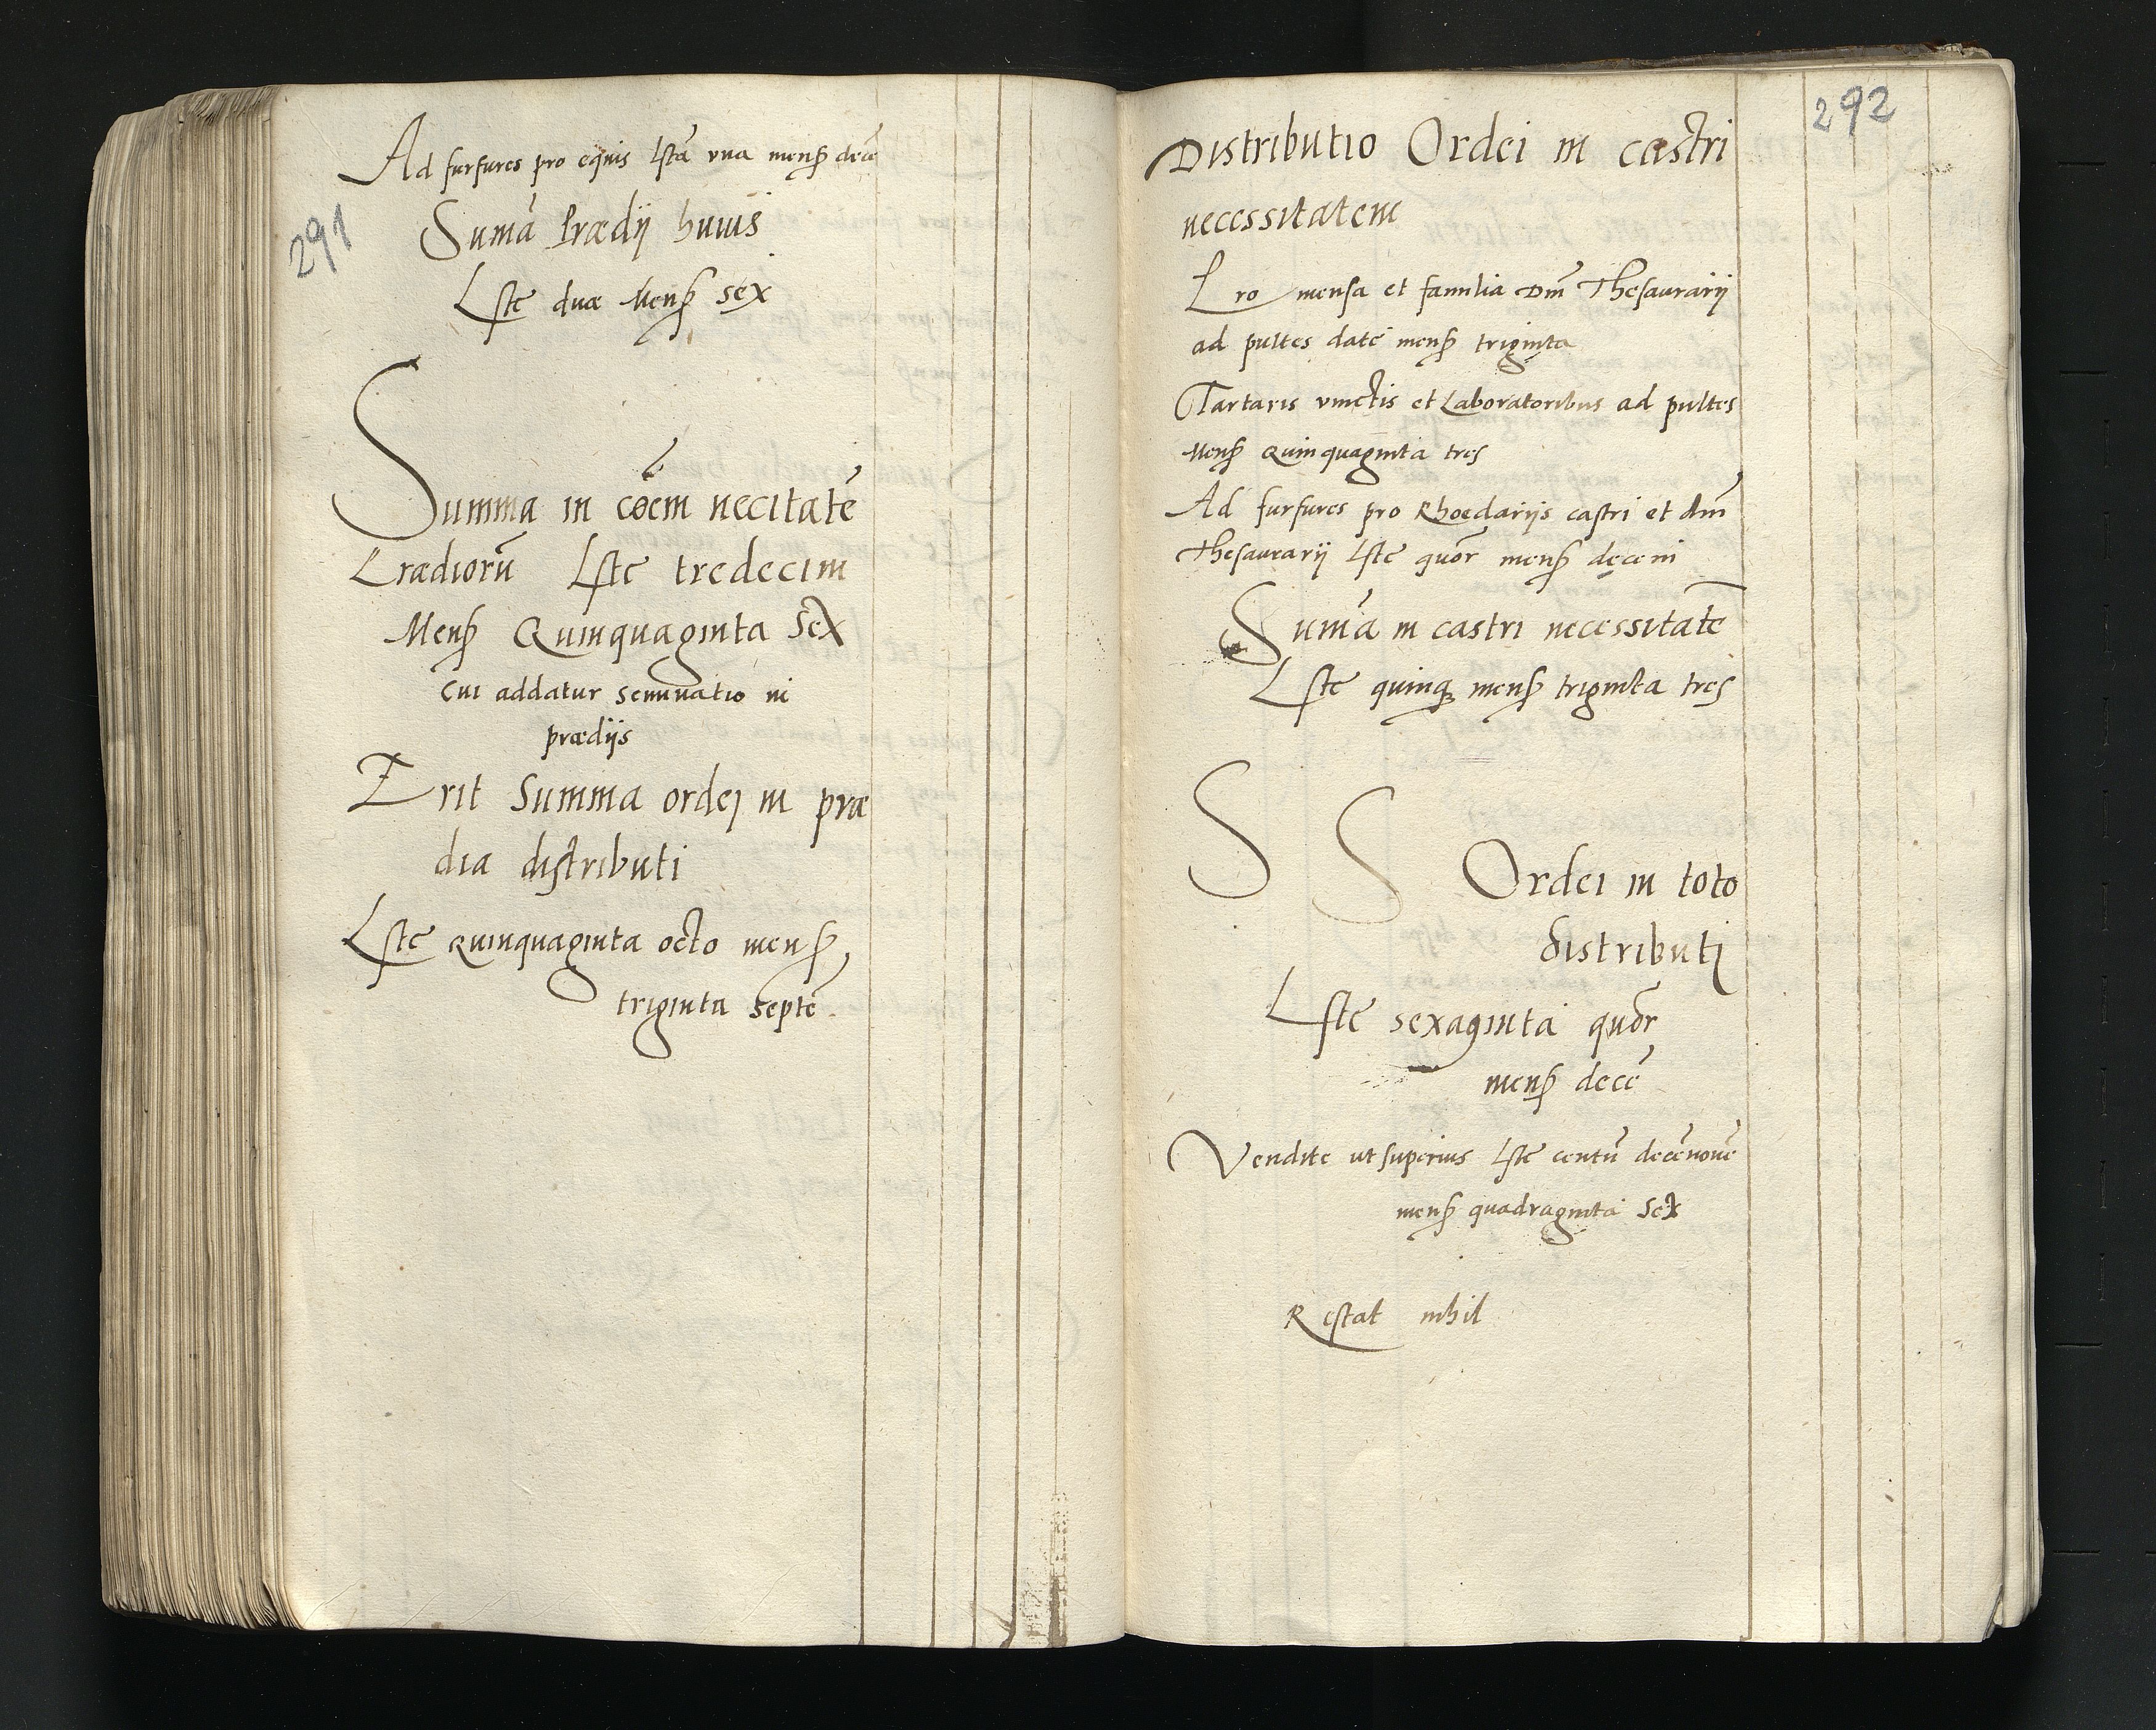 Ad furfures pro equis lstã vna mensʒ decẽ
291
Sumã Prædij huius
Lste duæ Mensʒ sex
Summa in cõem necitatẽ
Prædiorũ Lste tredecim
Mensʒ Quinquaginta sex
Cui addatur seminatio in
prædijs
Erit Summa ordej in præ
dia distributi
Lste Quinquaginta octo mensʒ
triginta septẽ
292
Distributio Ordei in castri
necessitatem
Pro mensa et familia Dñi Thesaurarij
ad pultes datẽ mensʒ triginta
Tartaris vinctis et Laboratoribus ad pultes
Mensʒ Quinquaginta tres
Ad furfures pro Rhoedarijs castri et dñi
Thesaurarij Lste quõr mensʒ decem
Sumã in castri necessitatẽ
Lste quinqʒ mensʒ triginta tres
S S Ordei in toto
distributj
Lste sexaginta quõr
mensʒ decẽ
Vendite ut superius Lste centũ decẽnovẽ
mensʒ quadraginta sex
Restat nihil